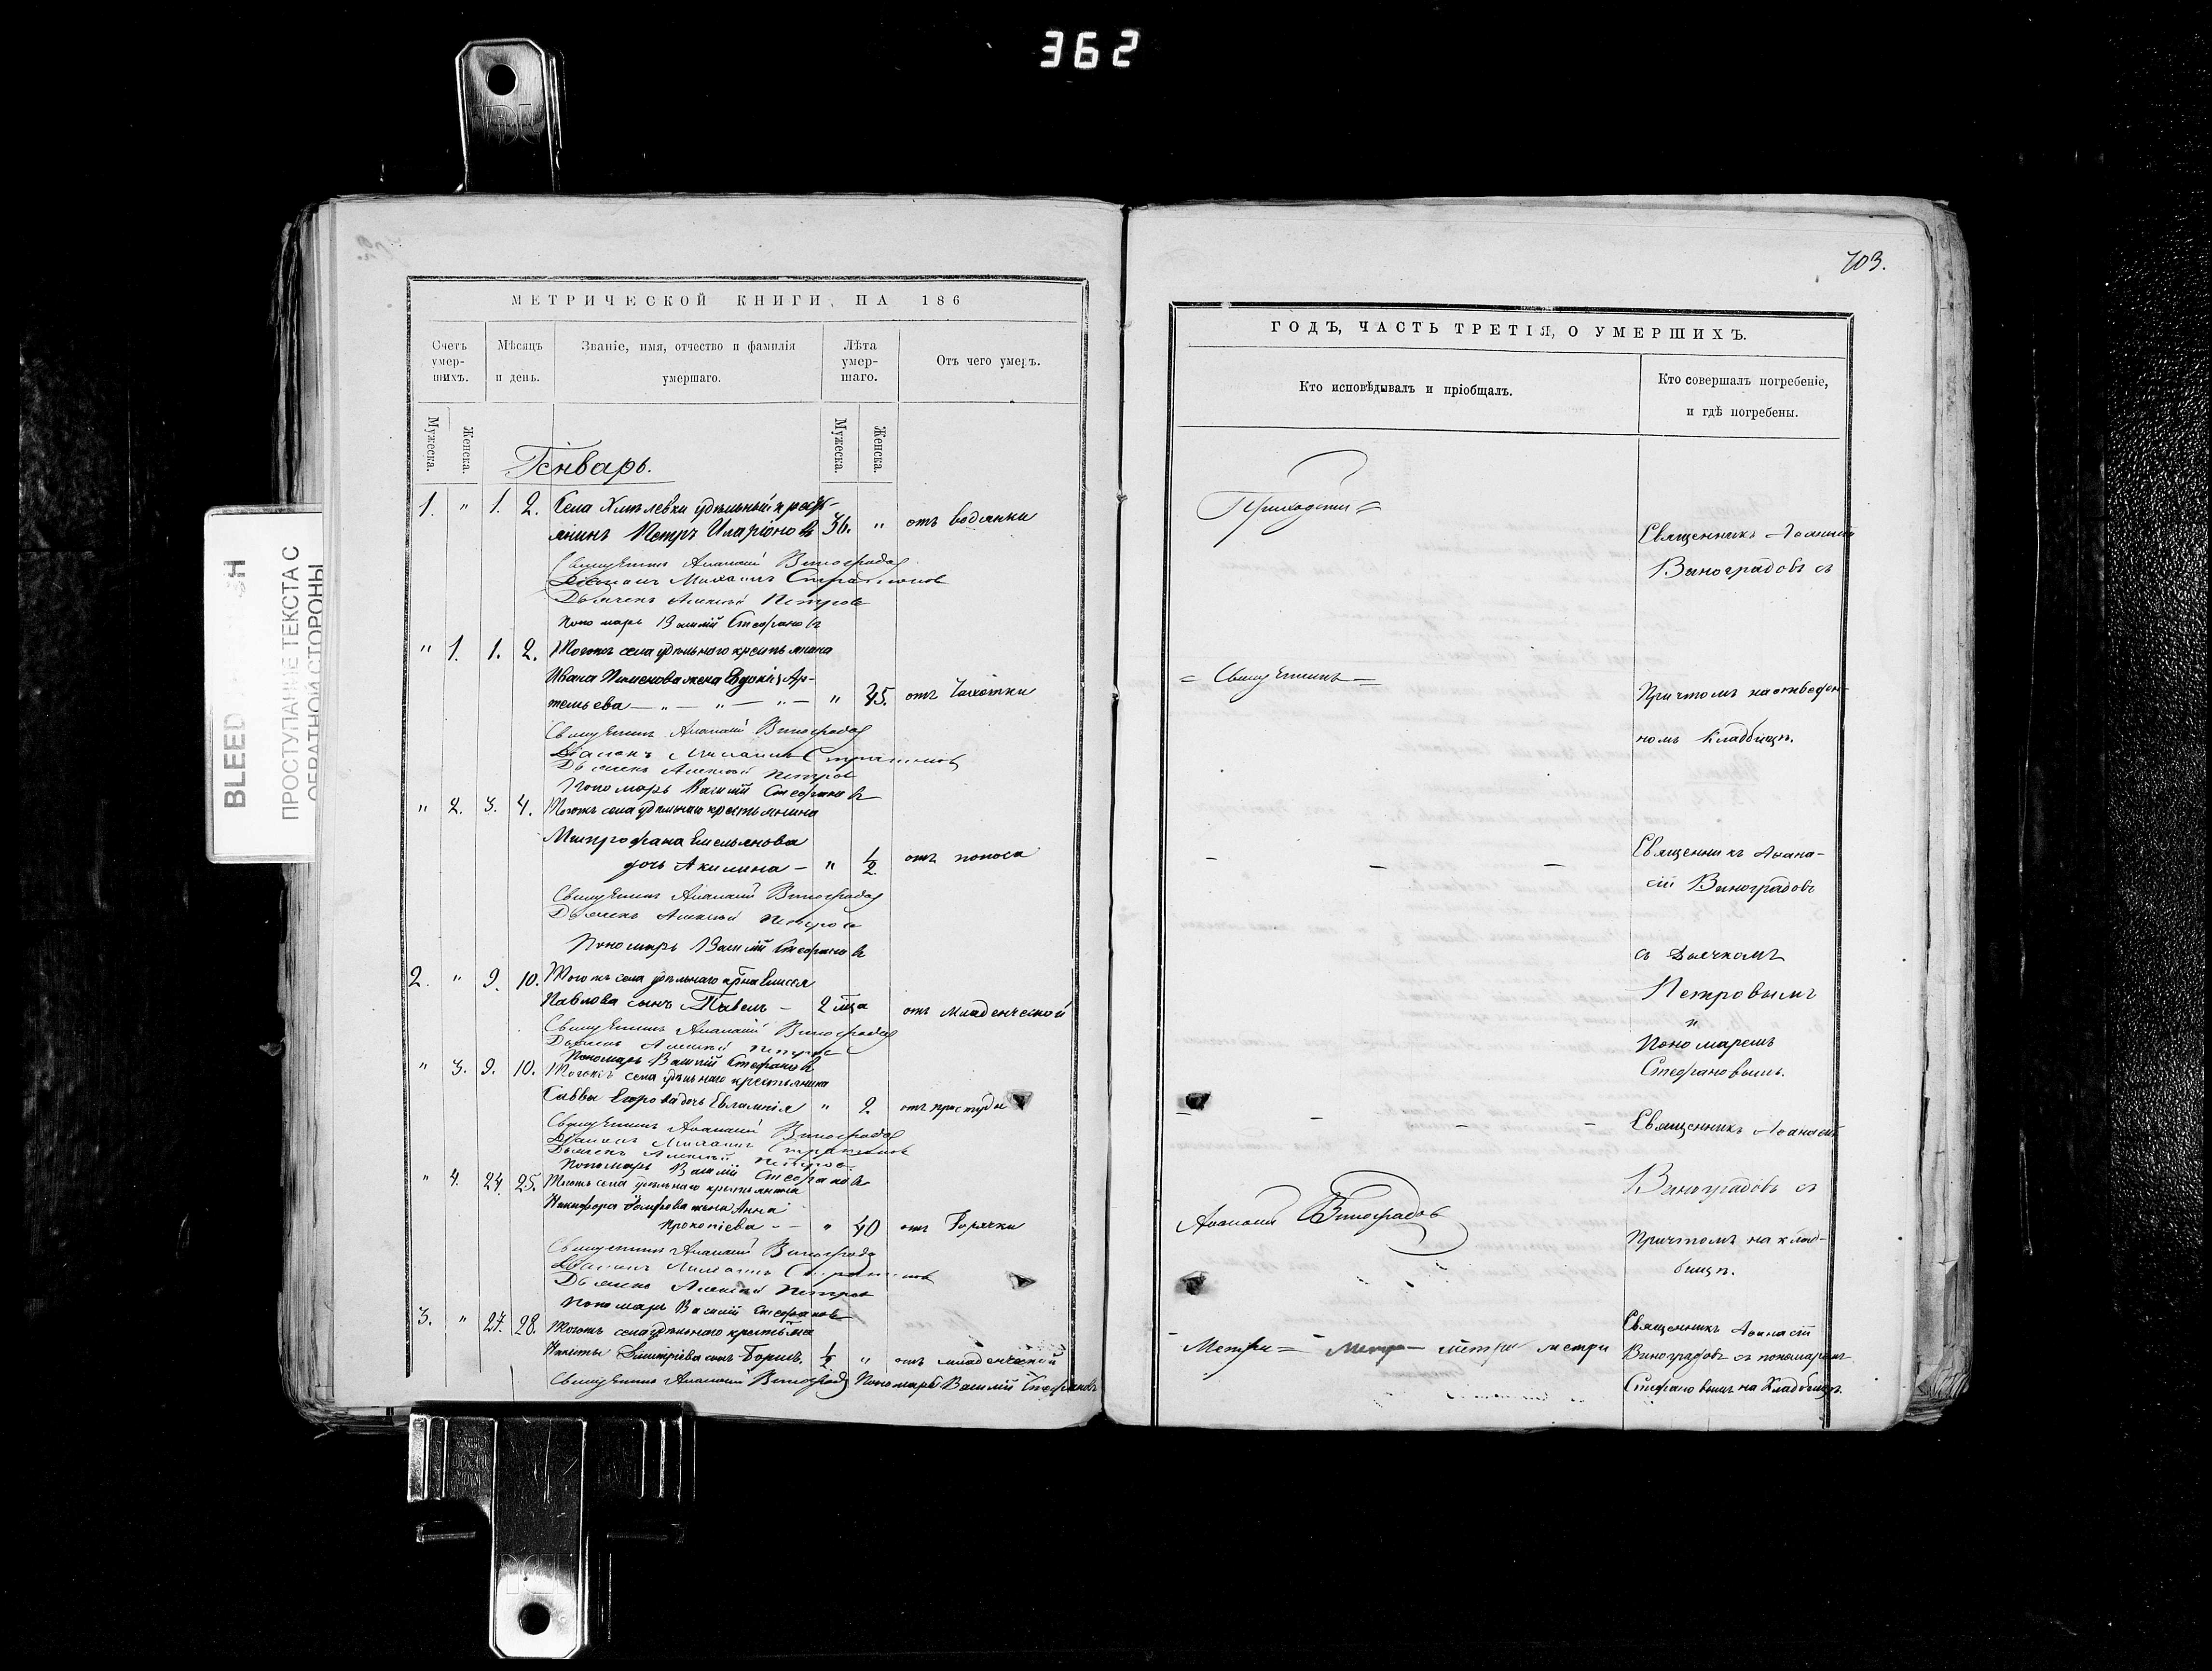 362
703.
МЕТРИЧЕСКОЙ КНИГИ, НА 186
Счетъ умер-шихъ.
Мѣсяцъ и день.
Званіе, имя, отчество и фамилія умершаго.
Лѣта умер-шаго.
Отъ чего умеръ.
Мужеска.
Женска.
Мужеска.
Женска.
Генварь.
1. " 1. 2. Села Хмѣлевки удѣльный кресть-
янинъ Петръ Иларіоновъ 36. " отъ водянки
Священникъ Аѳанасій Виноградовъ
Діаконъ Михаилъ
Дьячекъ Алексѣй Петровъ
Пономарь Василій Стефановъ
" 1. 1. 2. Тогожъ села удѣльнаго крестьянина
Ивана Пименова жена Евдокія Ар-
темьева — " — " — " — " 45. отъ чахотки
Священникъ Аѳанасій Виноградовъ
Діаконъ Михаилъ
Дьячекъ Алексѣй Петровъ
Пономарь Василій Стефановъ
" 2. 3. 4. Тогожъ села удѣльнаго крестьянина
Митрофана Емельянова
дочь Акилина — " ½ отъ поноса
Священникъ Аѳанасій Виноградовъ
Дьячекъ Алексѣй Петровъ
Пономарь Василій Стефановъ
2. " 9. 10. Тогожъ села удѣльнаго крна Елисея
Павлова сынъ Павелъ — 2 мца отъ младенческой
Священникъ Аѳанасій Виноградовъ
Дьячекъ Алексѣй Петровъ
Пономарь Василій Стефановъ
" 3. 9. 10. Тогожъ села удѣльнаго крестьянина
Саввы дочь Евлампія " 2. отъ простуды
Священникъ Аѳанасій Виноградовъ
Діаконъ Михаилъ
Дьячекъ Алексѣй Петровъ
Пономарь Василій Стефановъ
" 4. 24. 25. Тогожъ села удѣльнаго крестьянина
Никифора жена Анна
Прокопіева - - " 40 отъ горячки
Священникъ Аѳанасій Виноградовъ
Діаконъ Михаилъ
Дьячекъ Алексѣй Петровъ
Пономарь Василій Стефановъ
3. " 27. 28. Тогожъ села удѣльнаго
Никиты Димитріева сынъ Борисъ. ½ " отъ младенческой
Священникъ Аѳанасій Виноградовъ Пономарь Василій Стефановъ
ГОДЪ, ЧАСТЬ ТРЕТІЯ, О УМЕРШИХЪ.
Кто исповѣдывалъ и пріобщалъ.
Кто совершалъ погребеніе, и гдѣ погребены.
Священникъ Аѳанасій
Виноградовъ съ
= Священникъ =
Причтомъ на отведен-
номъ кладбищѣ.
Священникъ Аѳана-
сій Виноградовъ
съ Дьячкомъ
Петровымъ
и
Пономаремъ
Стефановымъ.
Священникъ Аѳанасій
Виноградовъ съ
Аѳанасій Виноградовъ
Причтомъ на клад-
бищѣ.
Священникъ Аѳанасій
Виноградовъ съ пономаремъ
Стефановымъ на кладбищѣ.
BLEED
ПРОСТУПАНИЕ ТЕКСТА С
ОБРАТНОЙ СТОРОНЫ